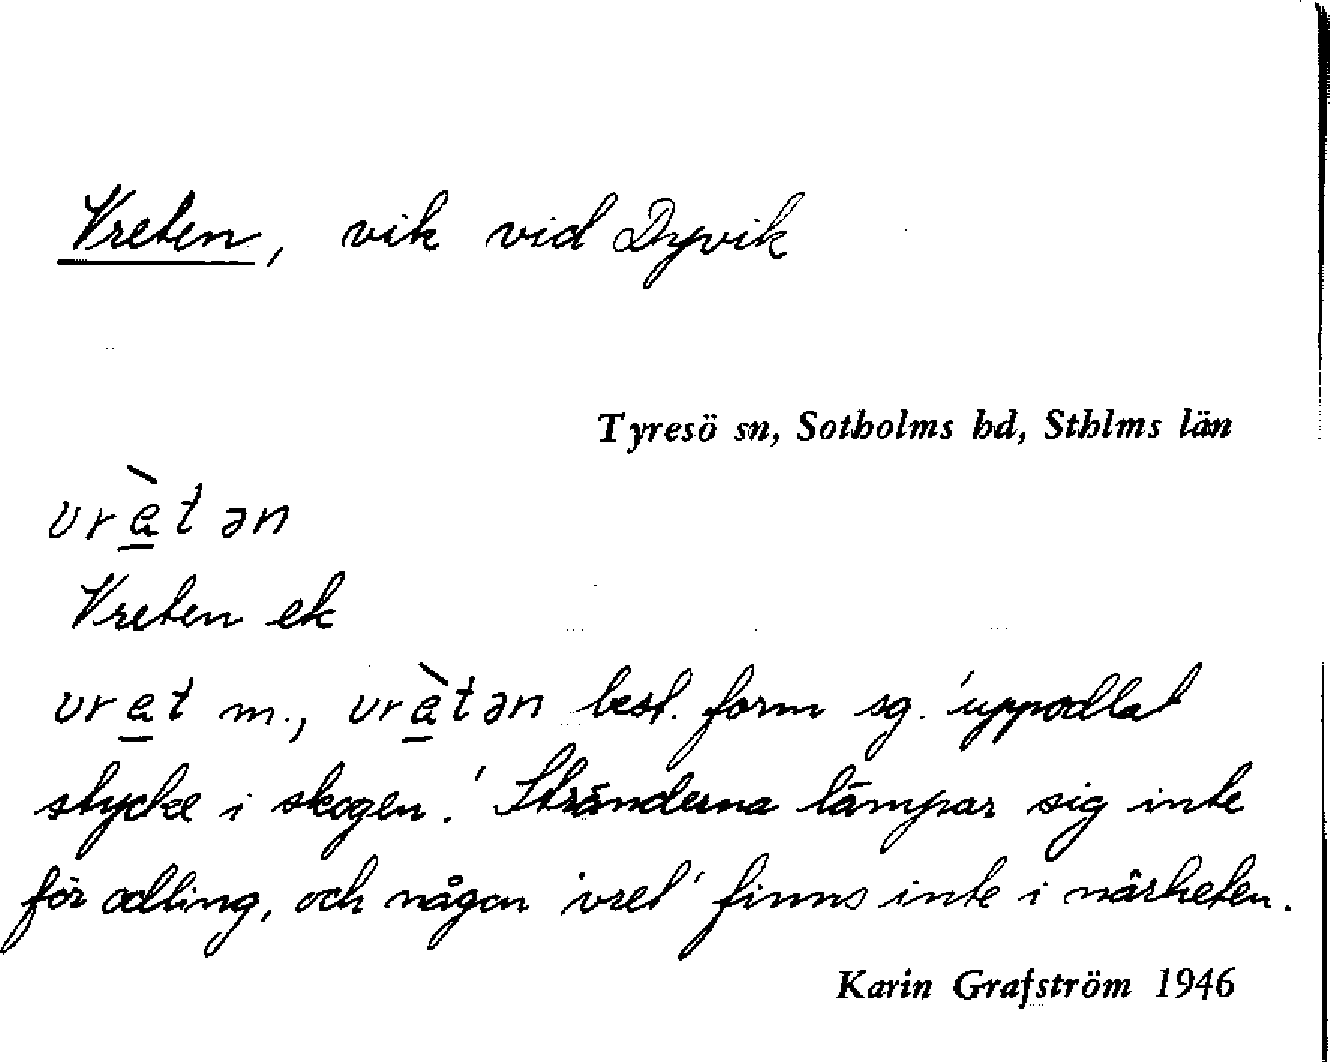 Vreten, vik vid Dyvik
Tyresö sn, Sotholms hd, Sthlms län
vrè̱tən
Vreten ek
vre̱t m., vrè̱tən best. form sg. 'uppodlat
stycke i skogen.' Stränderna lämpar sig inte
för odling, och någon 'vret' finns inte i närheten.
Karin Grafström 1946